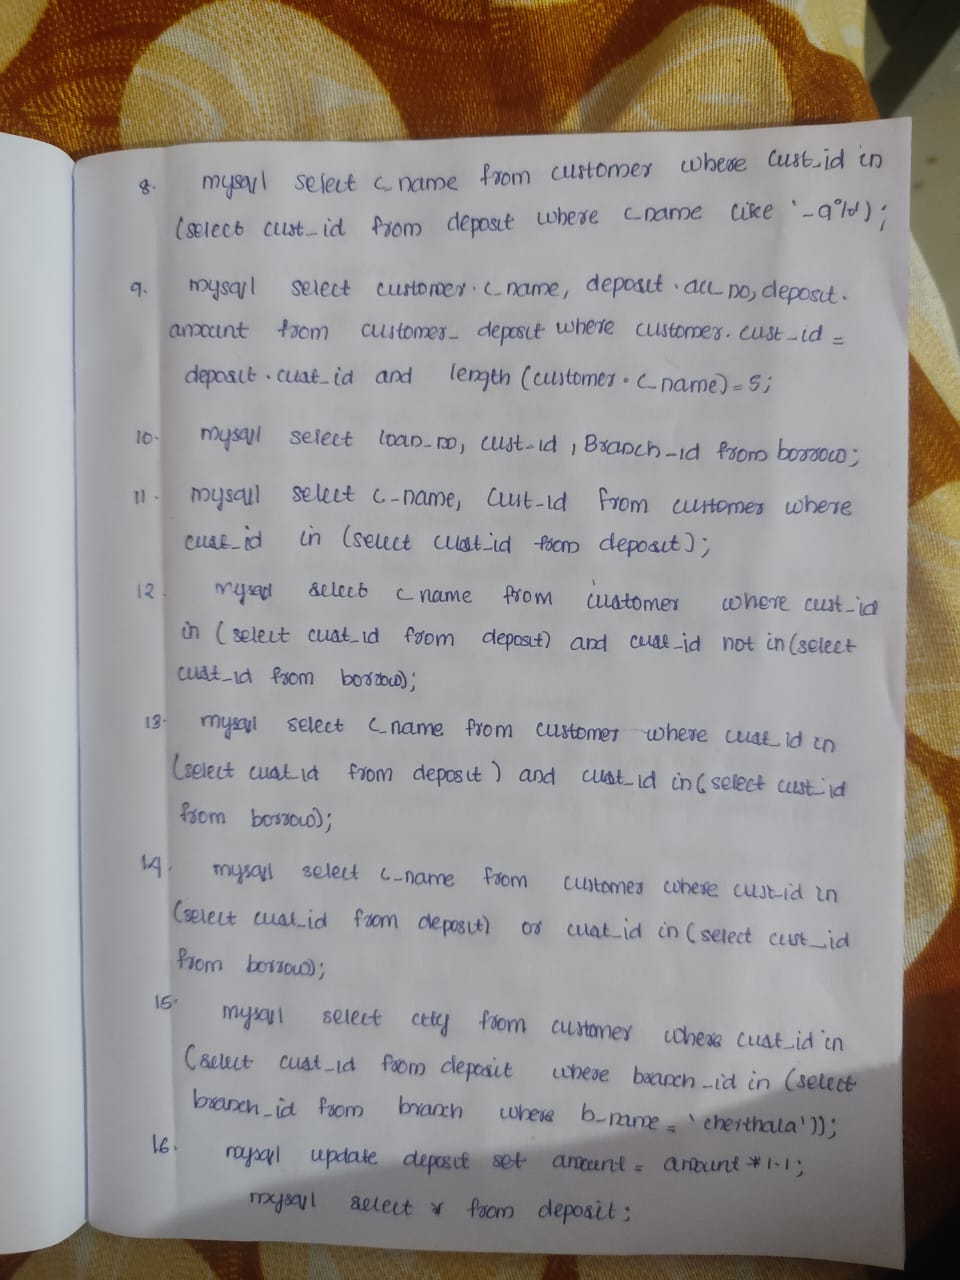 8. mysql select c name from customer where cust_id in
(select cust_id from deposit where c name like '_a%');
9. mysql select customer.c name, deposit.acc no, deposit.
amount from customer_ deposit where customer.cust_id =
deposit.cust_id and length (customer.c name)=5;
10. mysql select loan_no, cust_id, Branch_id from borrow;
11. mysql select c_name, cust_id from customer where
cust_id in (select cust_id from deposit);
12. mysql select c name from customer where cust_id
in (select cust_id from deposit) and cust_id not in (select
cust_id from borrow);
13. mysql select c name from customer where cust_id in
(select cust_id from deposit) and cust_id in (select cust_id
from borrow);
14. mysql select c_name from customer where cust_id in
(select cust_id from deposit) or cust_id in (select cust_id
from borrow);
15. mysql select city from customer where cust_id in
(select cust_id from deposit where branch_id in (select
branch_id from branch where b_name = 'cherthala'));
16. mysql update deposit set amount = amount * 1.1;
mysql select * from deposit;